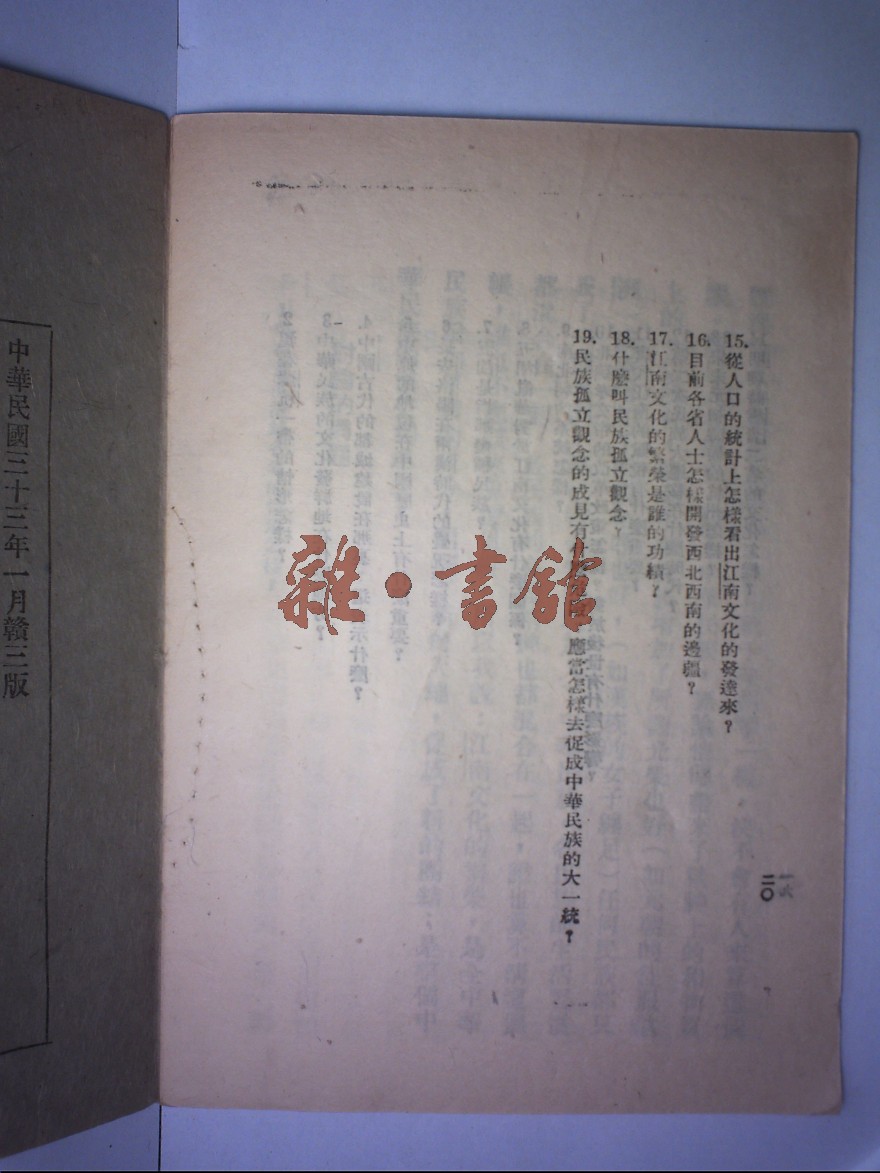 15.從人口的統計上怎樣看出江南文化的發達來？
16.目前各省人士怎樣開發西北西南的邊疆？
17.江南文化的繁榮是誰的功績？
18.什麼叫民族孤立觀念？
19.民族孤立觀念的成見有 應當怎樣去促成中華民族的大一統？
二〇
雜·書館
中華民國三十三年一月贛三版